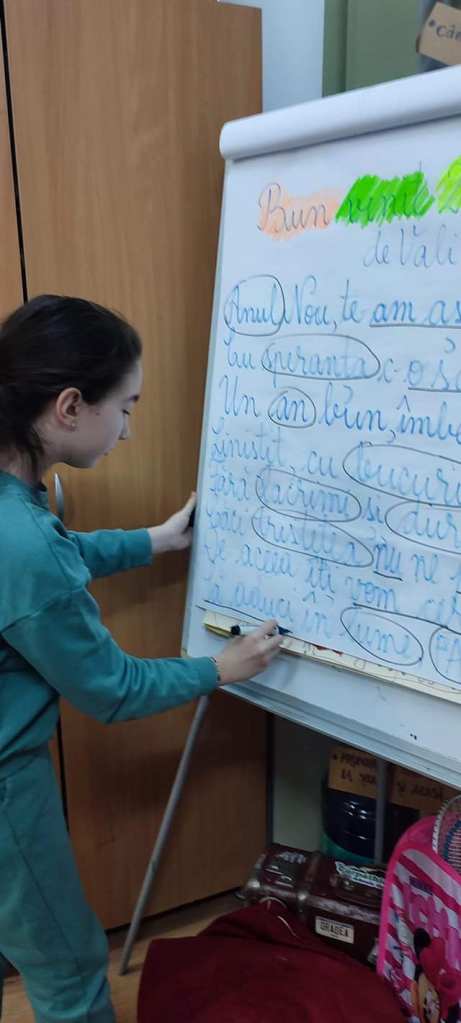 Bun venit
de Vali
Anul Nou, te am aș
Cu speranta c-o să
Un an bun, îmbe
Liniștit, cu bucuri
Fără lacrimi și dur
Căci tristețea nu ne
De aceea îți vom ce
Să aduci în lume
ORADEA